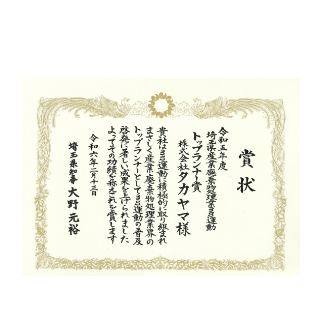 賞状
令和五年度
埼玉県産業廃棄物処理業3S運動
トップランナー賞
株式会社タカヤマ様
貴社は3S運動に積極的に取り組まれ
まさしく産業廃棄物処理業界の
トップランナーとして3S運動の普及
啓発に著しい成果を上げられました
よってその功績を称えこれを賞します
令和六年二月十三日
埼玉県知事 大野元裕